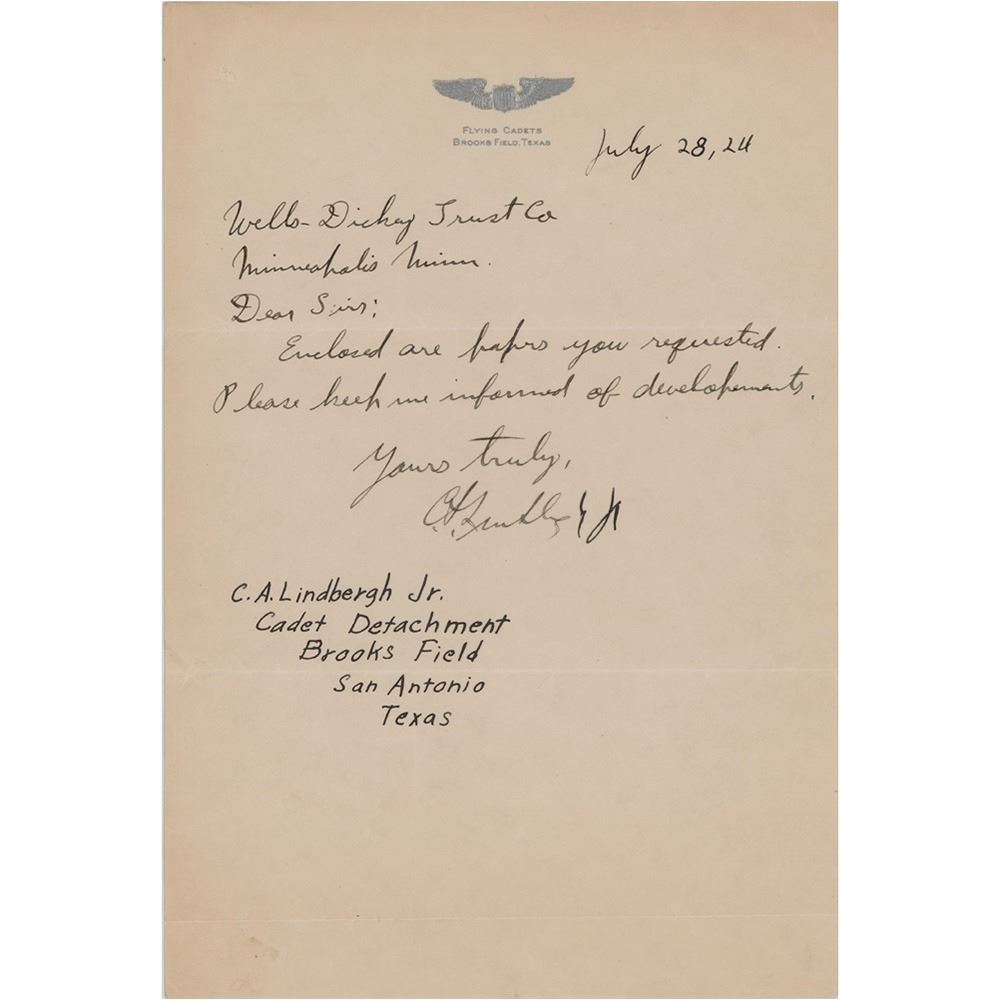 FLYING CADETS
BROOKS FIELD, TEXAS
July 28, 24
Wells-Dickey Trust Co
Minneapolis Minn.
Dear Sirs;
Enclosed are papers you requested.
Please keep me informed of developements.
Yours truly,
C.A. Lindbergh Jr
C. A. Lindbergh Jr.
Cadet Detachment
Brooks Field
San Antonio
Texas